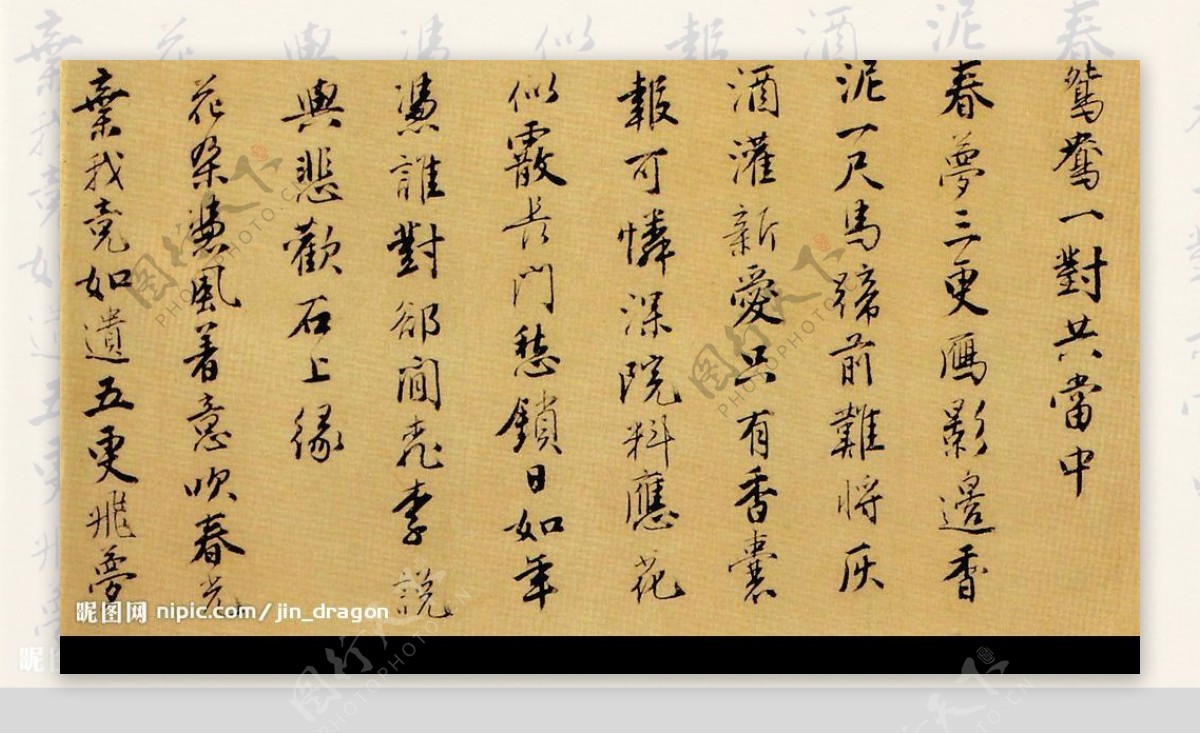 鴛鴦一對共當中
春夢三更雁影邊香
泥一尺馬蹄前難將灰
酒灌新愛只有香囊
報可憐深院料應花
似霰長門愁鎖日如年
憑誰對卻閒花李說
與悲歡石上緣
花朵憑風着意吹春光
棄我竟如遺五更飛夢
昵图网 nipic.com/jin_dragon